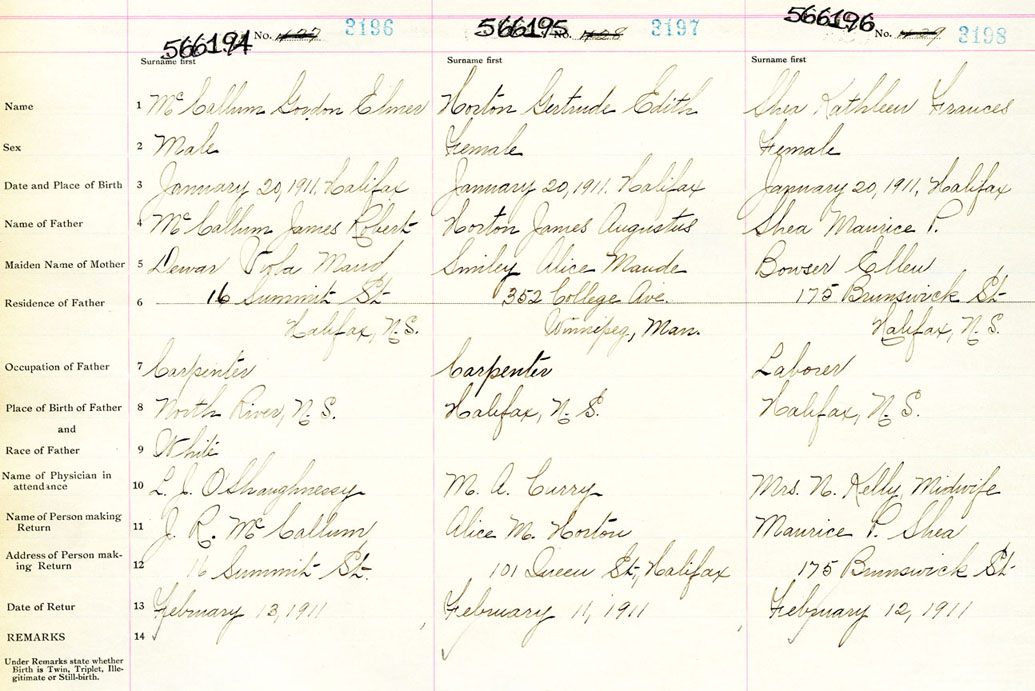 566194 No. 3196 566195 No. 3197 566196 No. 3198
Surname first Surname first Surname first
Name 1 McCallum Gordon Elmer Horton Gertrude Edith Shea Kathleen Frances
Sex 2 Male Female Female
Date and Place of Birth 3 January 20, 1911. Halifax January 20, 1911. Halifax January 20, 1911, Halifax
Name of Father 4 McCallum James Robert Horton James Augustus Shea Maurice P.
Maiden Name of Mother 5 Dewar Viola Maud Smiley Alice Maude Bowser Ellen
Residence of Father 6 16 Summit St 352 College Ave. 175 Brunswick St
Halifax, N.S. Winnipeg, Man. Halifax, N.S.
Occupation of Father 7 Carpenter Carpenter Laborer
Place of Birth of Father 8 North River, N.S. Halifax, N.S. Halifax, N.S.
and
Race of Father 9 White
Name of Physician in
attendance 10 L. J. O'Shaughnessy M. A. Curry Mrs. N. Kelly, Midwife
Name of Person making
Return 11 J. R. McCallum Alice M. Horton Maurice P. Shea
Address of Person mak-
ing Return 12 16 Summit St. 101 Queen St, Halifax 175 Brunswick St
Date of Retur 13 February 13, 1911 February 11, 1911 February 12, 1911
REMARKS 14
Under Remarks state whether
Birth is Twin, Triplet, Ille-
gitimate or Still-birth.